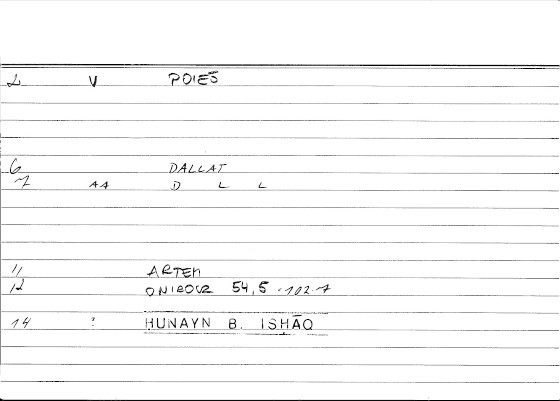 2 V POIEŌ
6 DALLAT
7 AA D L L
11 ARTEM
12 ONIROCR 54,5 - 102.7
14 : HUNAYN B. ISHĀQ